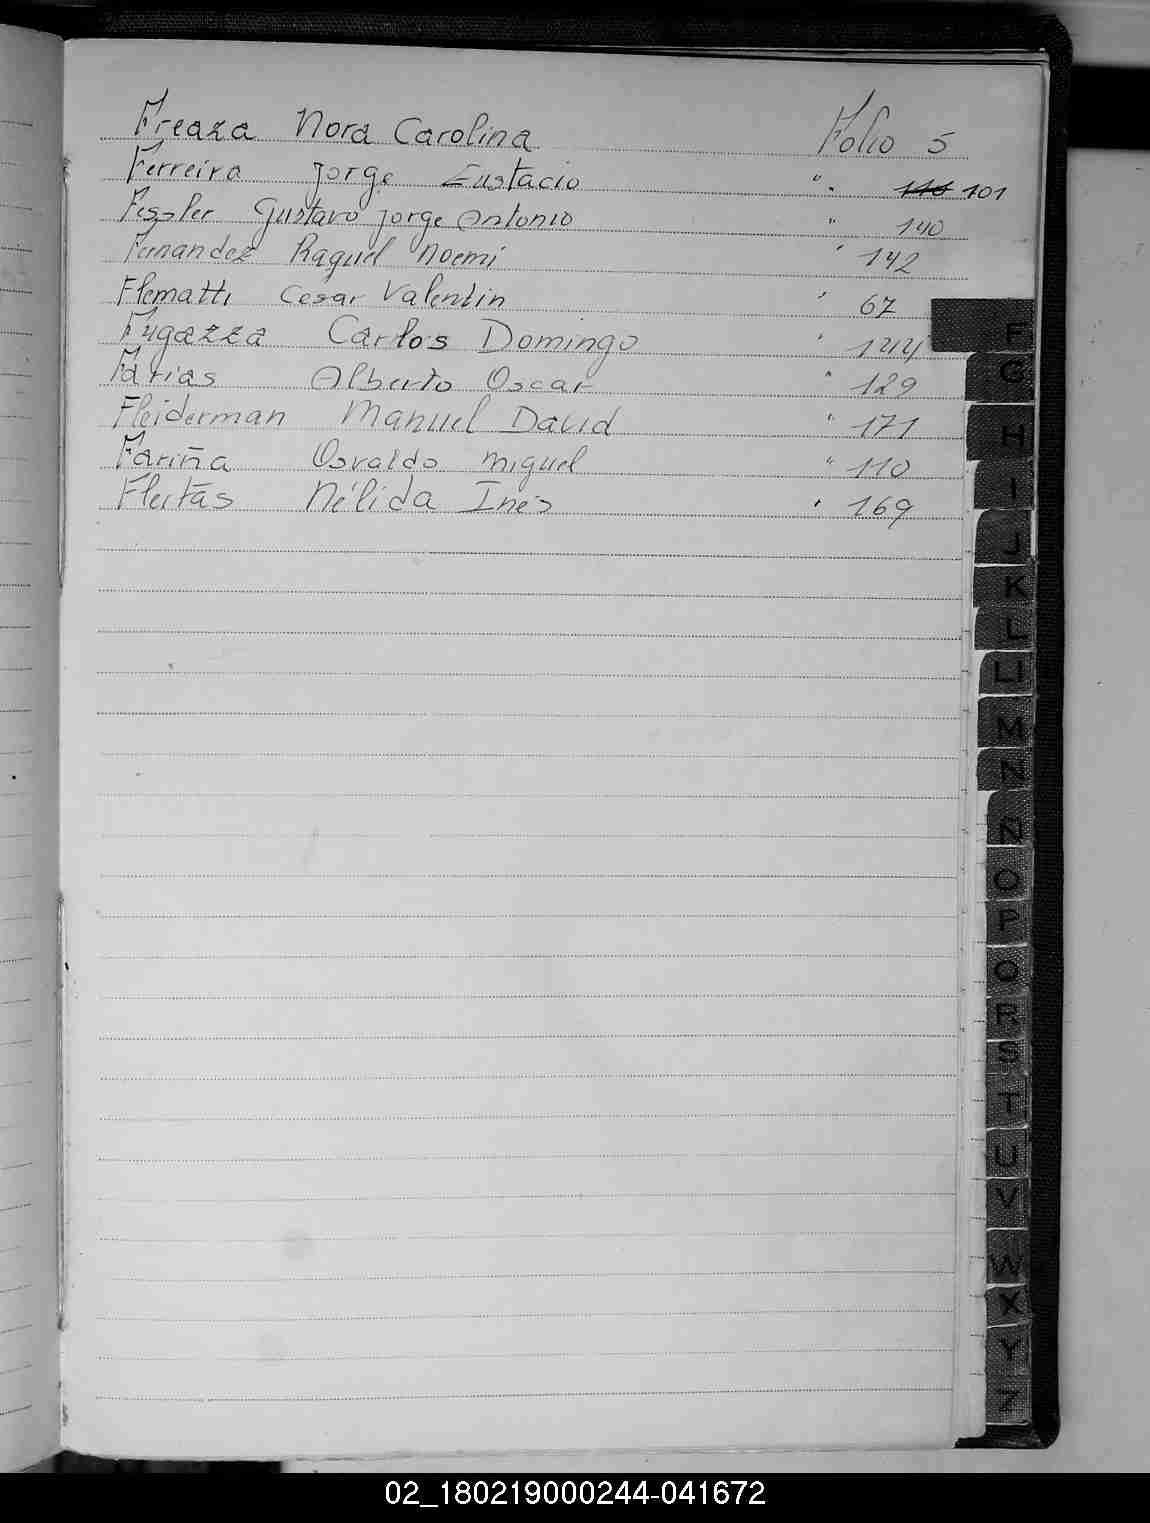 Freaza Nora Carolina Folio 5
Ferreira Jorge Eustacio " 110 101
Fessler Gustavo Jorge Antonio " 140
Fernandez Raquel Noemi " 142
Flematti Cesar Valentin " 67
Fugazza Carlos Domingo " 144
Farias Alberto Oscar " 129
Fleiderman Manuel David " 171
Fariña Osvaldo Miguel " 110
Fleitas Nélida Inés " 169
F
G
H
I
J
K
L
Ll
M
N
Ñ
O
P
Q
R
S
T
U
V
W
X
Y
Z
02_180219000244-041672